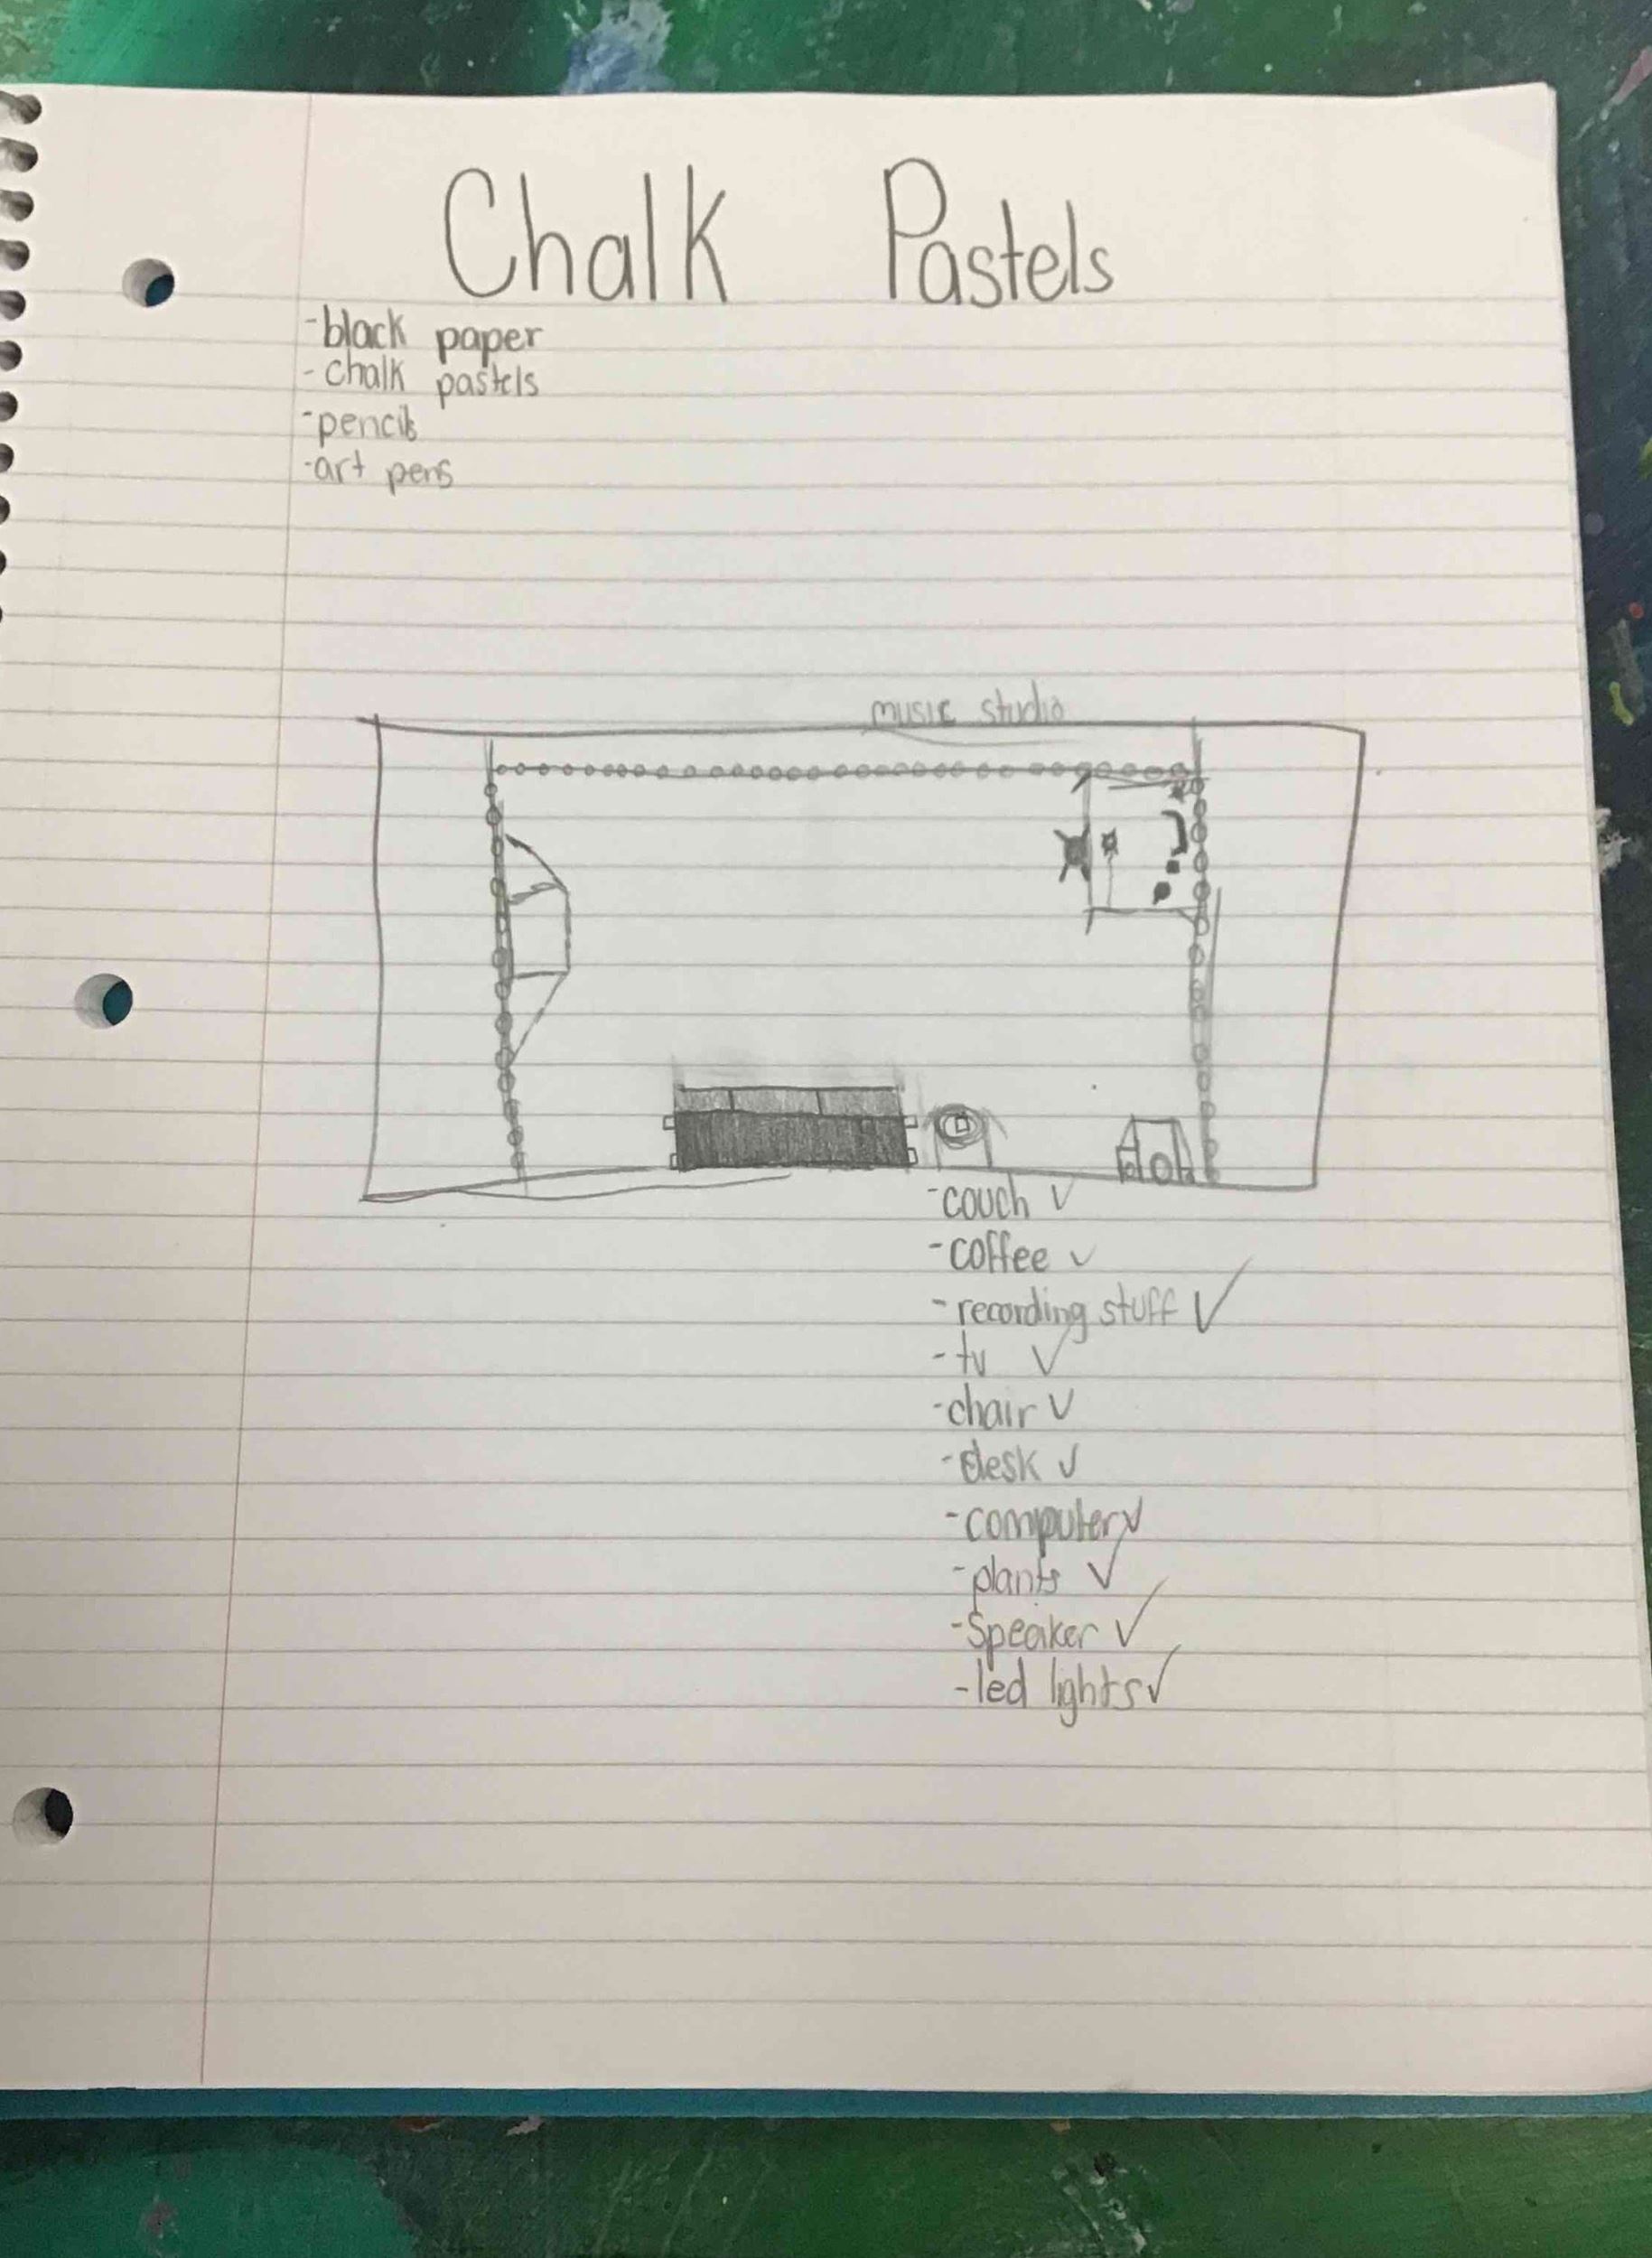 Chalk Pastels
-black paper
-chalk pastels
-pencils
-art pens
music studio
-couch ✓
-coffee ✓
-recording stuff ✓
-tv ✓
-chair ✓
-desk ✓
-computer ✓
-plants ✓
-Speaker ✓
-led lights ✓